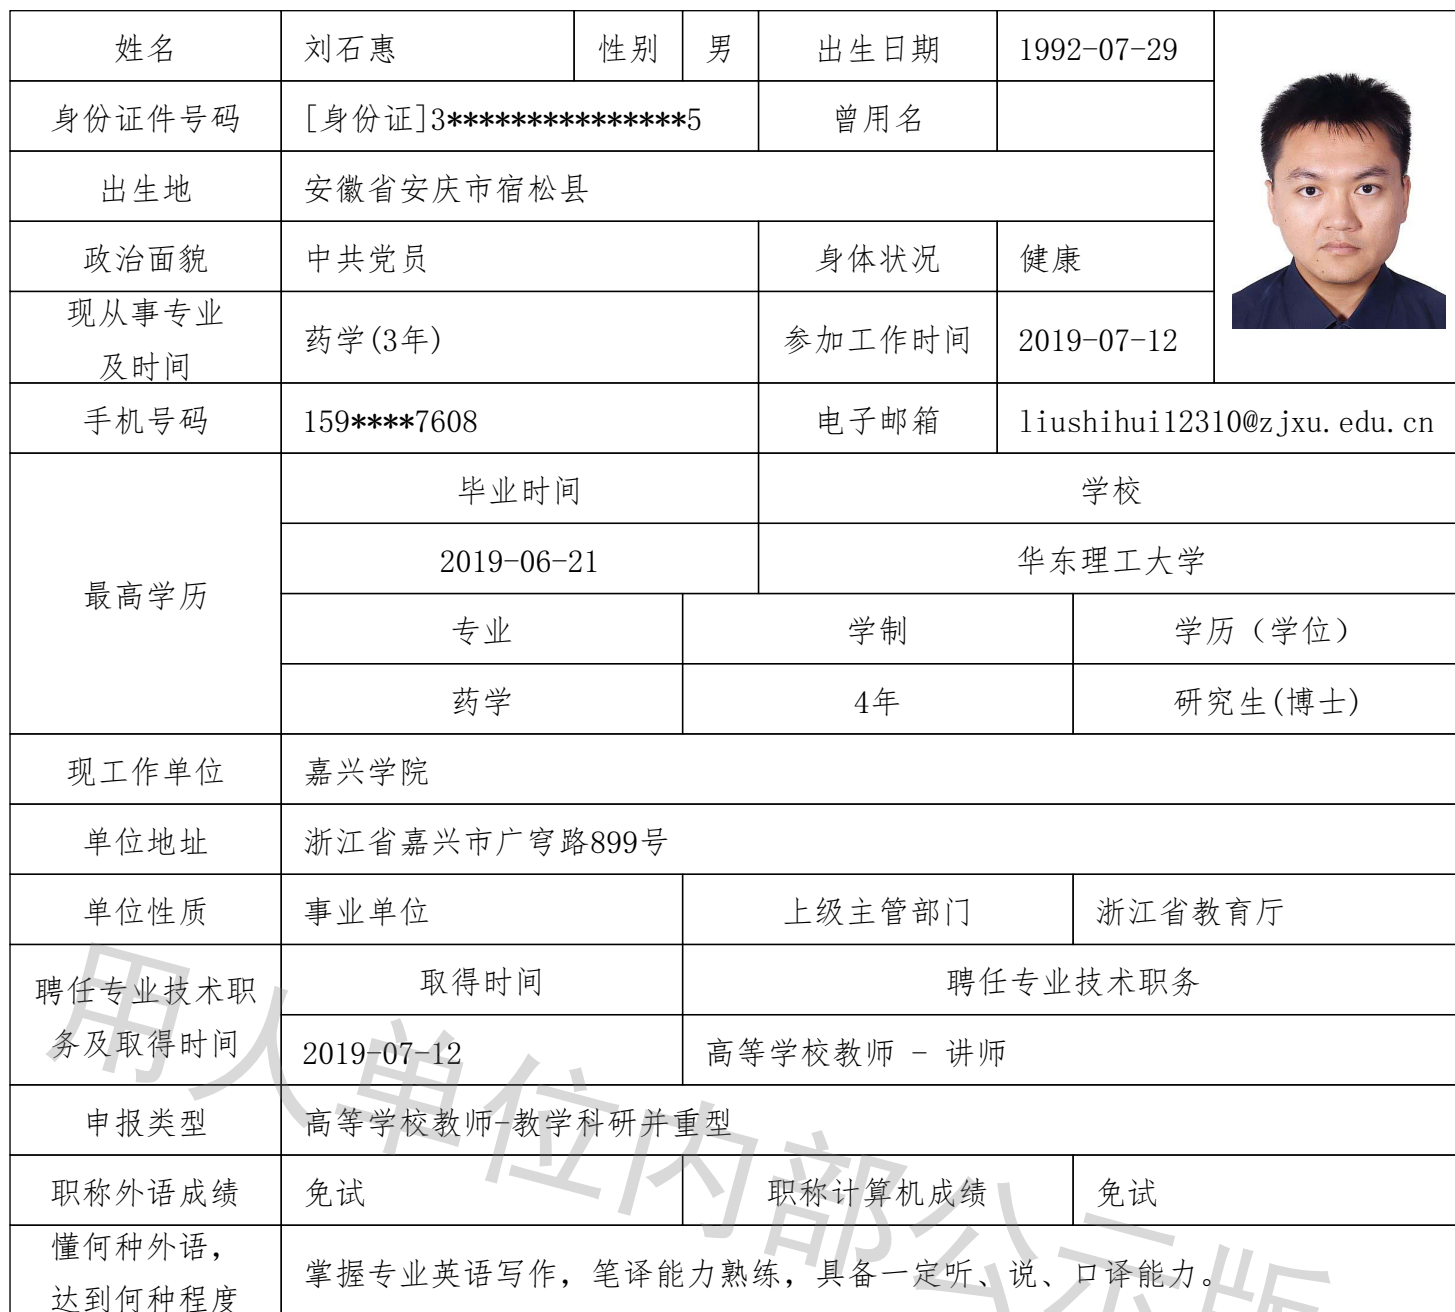 姓名 刘石惠 性别 男 出生日期 1992-07-29
身份证件号码 [身份证]3***************5 曾用名
出生地 安徽省安庆市宿松县
政治面貌 中共党员 身体状况 健康
现从事专业
及时间 药学(3年) 参加工作时间 2019-07-12
手机号码 159****7608 电子邮箱 liushihui12310@zjxu.edu.cn
最高学历
毕业时间 学校
2019-06-21 华东理工大学
专业 学制 学历（学位）
药学 4年 研究生(博士)
现工作单位 嘉兴学院
单位地址 浙江省嘉兴市广穹路899号
单位性质 事业单位 上级主管部门 浙江省教育厅
聘任专业技术职
务及取得时间
取得时间 聘任专业技术职务
2019-07-12 高等学校教师 - 讲师
申报类型 高等学校教师-教学科研并重型
职称外语成绩 免试 职称计算机成绩 免试
懂何种外语，
达到何种程度 掌握专业英语写作，笔译能力熟练，具备一定听、说、口译能力。
用人单位内部公示版